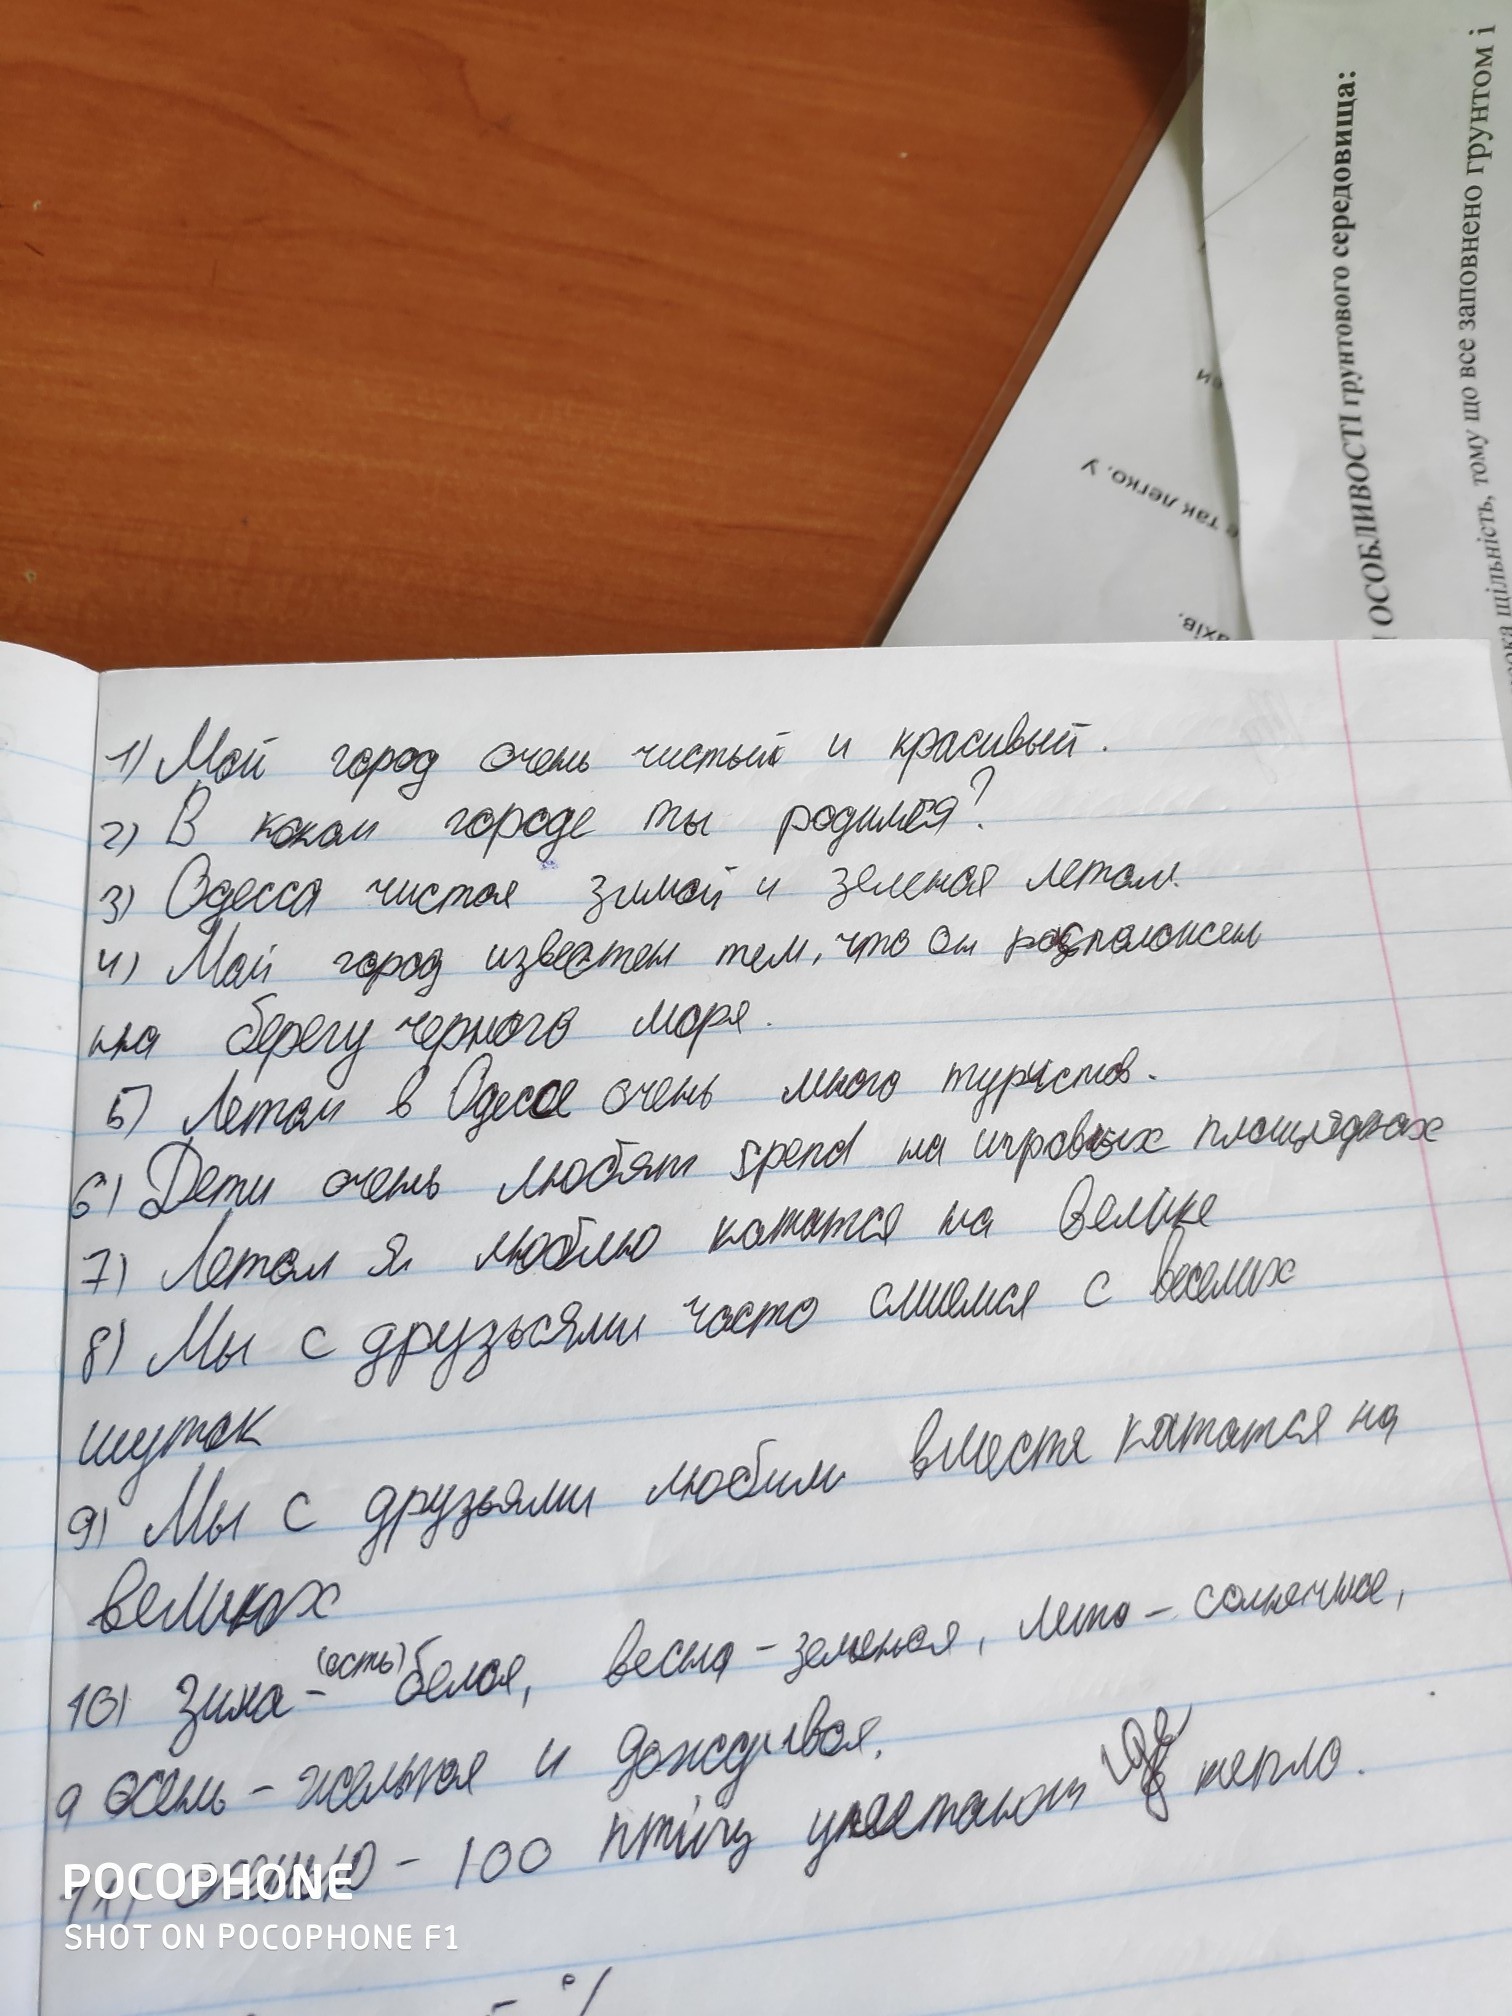 ОСОБЛИВОСТІ ґрунтового середовища:
щільність, тому що все заповнено ґрунтом і
так легко. У
1) Мой город очень чистый и красивый.
2) В каком городе ты родился?
3) Одесса чистая зимой и зеленая летом.
4) Мой город известен тем, что он расположен
на берегу черного моря.
5) Летом в Одессе очень много туристов.
6) Дети очень любят spend на игровых площадках
7) Летом я люблю кататся на велике
8) Мы с друзьями часто смиемся с веселих
шуток
9) Мы с друзьями любим вместя кататся на
великах
10) Зима - (есть) белая, весна - зеленая, лето - солнечное,
осень - желтая и дождливая.
11) осенью - 100 птіцу улетают тепло.
POCOPHONE
SHOT ON POCOPHONE F1